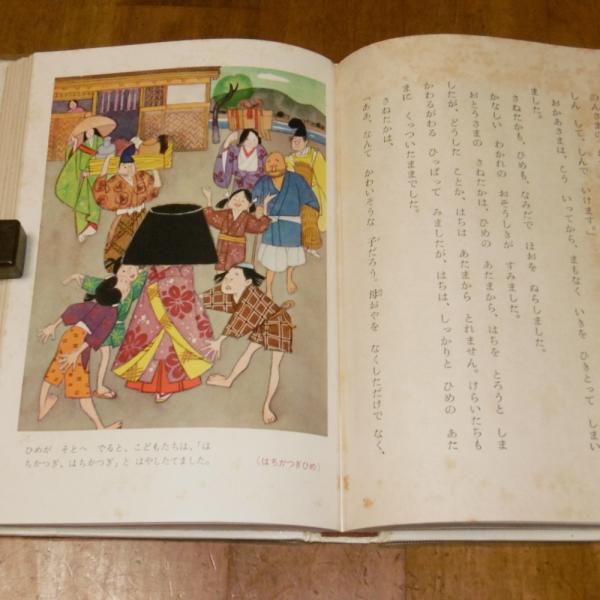 しん して、しんで いけます。」
おかあさまは、こう いってから、まもなく いきを ひきとって しまい
ました。
さねたかも、ひめも、なみだで ほおを ぬらしました。
かなしい わかれの おそうしきが すみました。
おとうさまの さねたかは、ひめの あたまから、はちを とろうと しま
したが、どうした ことか、はちは あたまから とれません。けらいたちも
かわるがわる ひっぱって みましたが、はちは、しっかりと ひめの あた
まに くっついたままでした。
さねたかは、
「ああ、なんて かわいそうな 子だろう。母おやを なくしただけで なく、
ひめが そとへ でると、こどもたちは、「は
ちかつぎ、はちかつぎ」と はやしたてました。
(はちかつぎひめ)